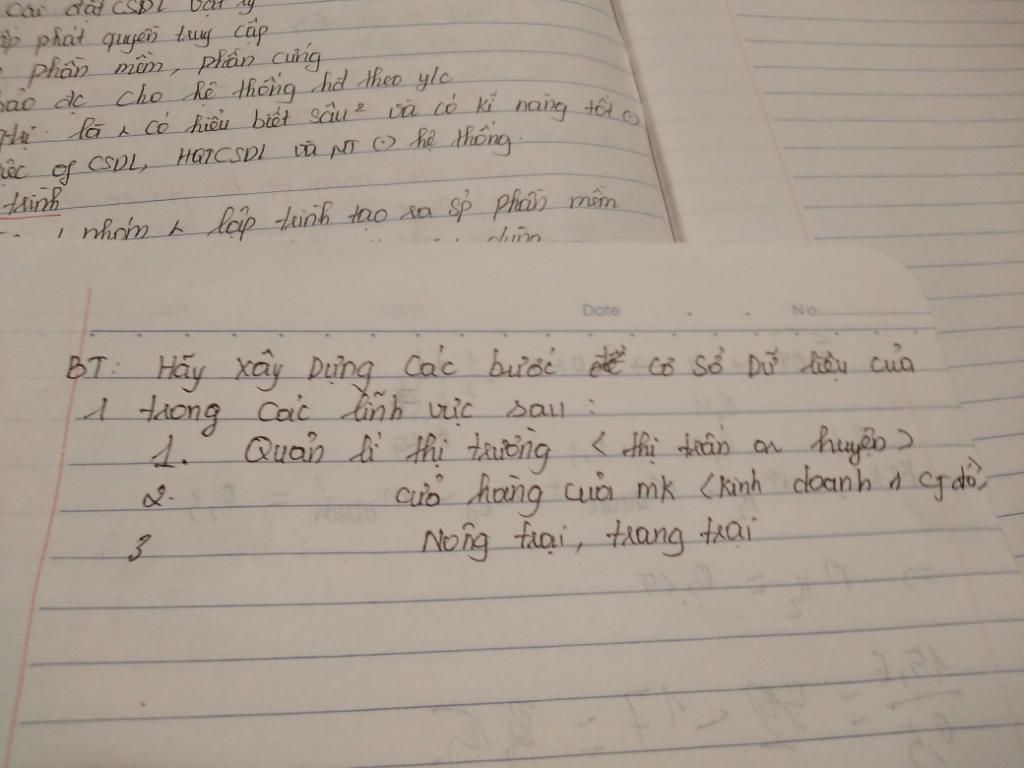 cài đặt CSDL vật lý
phát quyền truy cập
phần mềm, phần cứng
đc cho hệ thống hđ theo y/c
là 1 có hiểu biết sâu² và có kĩ năng tốt
of CSDL, HQTCSDL và MT (-) hệ thống.
trình
, nhóm lập trình tạo ra sp phần mềm
Date No
BT: Hãy xây Dựng Các bước cơ Sở Dữ liệu của
1 trong Các lĩnh vực sau:
1. Quản lí thị trường < thị trấn or huyện >
2. cửa hàng của mk < kinh doanh 1 cj đó >
3 Nông trại, trang trại